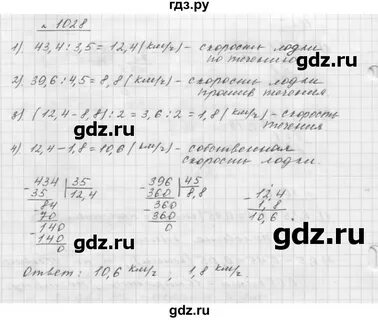 гдз.ру
№ 1028
1) 43,4 : 3,5 = 12,4 (км/ч) - скорость лодки
по течению
2) 39,6 : 4,5 = 8,8 (км/ч) - скорость лодки
против течения
gdz.ru
3) (12,4 - 8,8) : 2 = 3,6 : 2 = 1,8 (км/ч) - скорость
течения
gdz.ru
4) 12,4 - 1,8 = 10,6 (км/ч) - собственная
скорость лодки.
434 | 35
35 | 12,4
84
70
140
140
0
396 | 45
360 | 8,8
360
360
0
12,4
1,8
10,6
gdz.ru
Ответ: 10,6 км/ч, 1,8 км/ч
gdz.ru